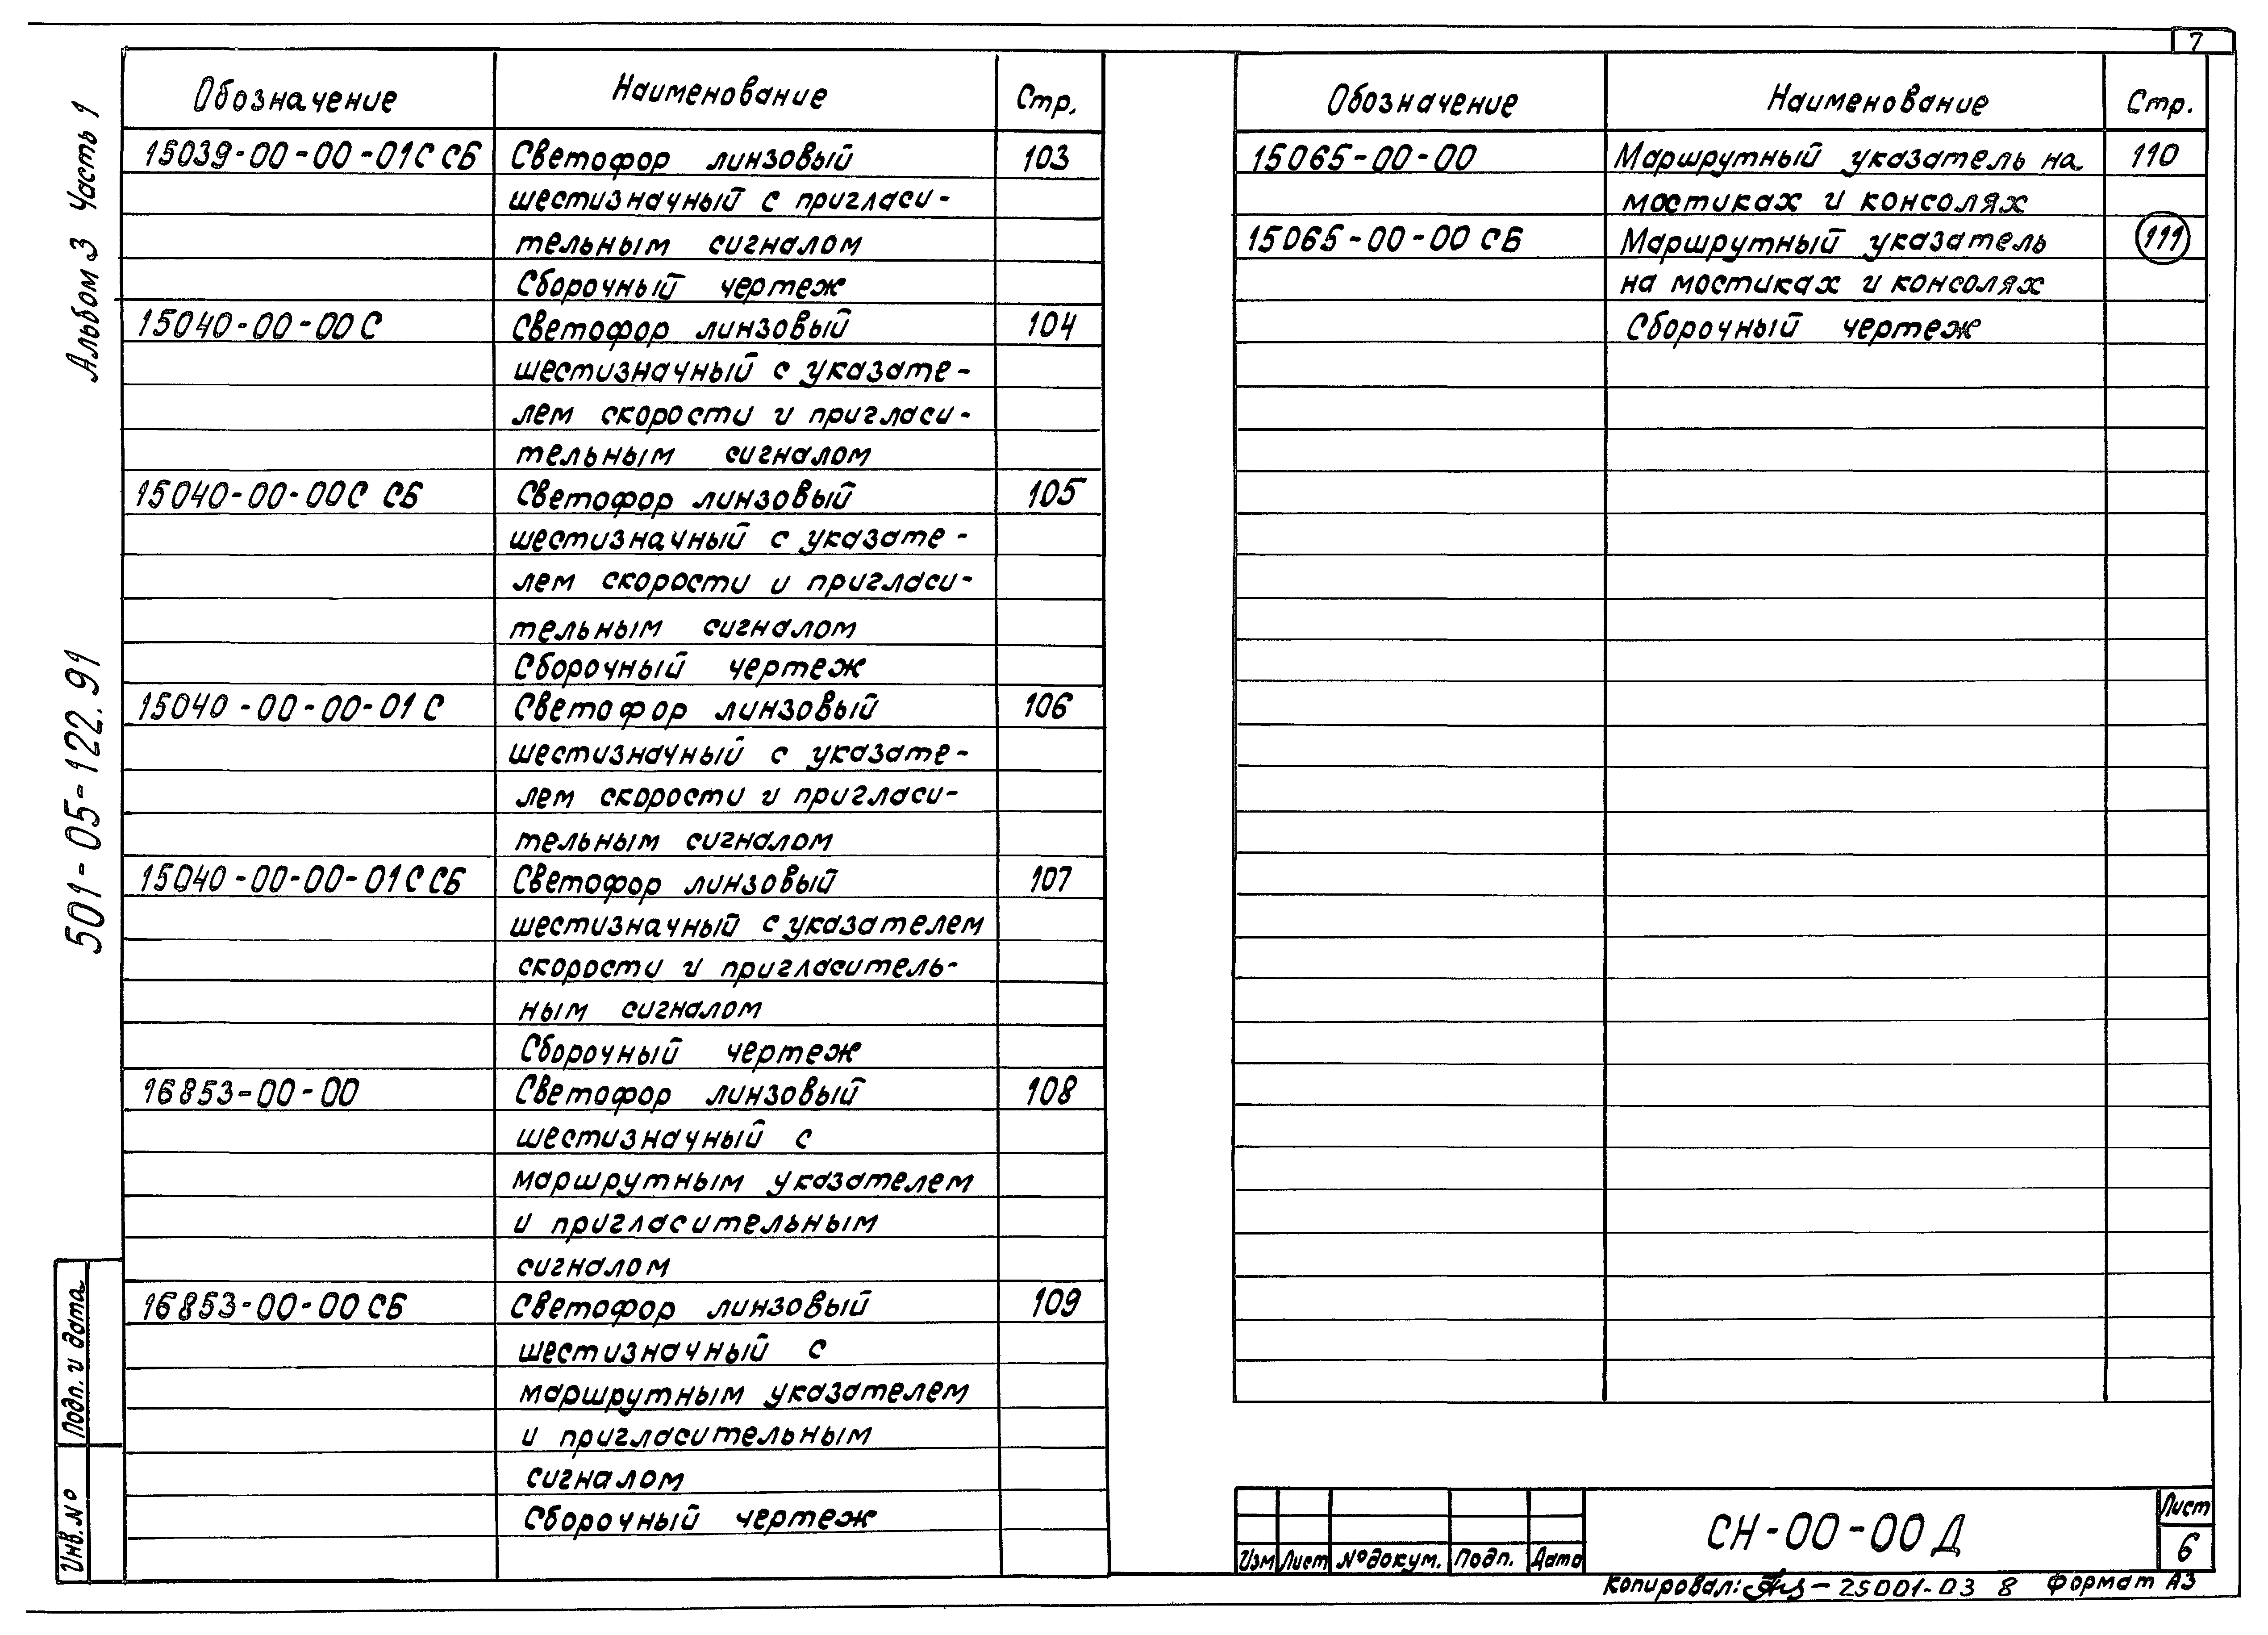 7
Альбом 3 Часть 1
501-05-122.91
Подп. и дата
Инв. №
Обозначение Наименование Стр.
15039-00-00-01С СБ Светофор линзовый 103
шестизначный с пригласи-
тельным сигналом
Сборочный чертеж
15040-00-00С Светофор линзовый 104
шестизначный с указате-
лем скорости и пригласи-
тельным сигналом
15040-00-00С СБ Светофор линзовый 105
шестизначный с указате-
лем скорости и пригласи-
тельным сигналом
Сборочный чертеж
15040-00-00-01 С Светофор линзовый 106
шестизначный с указате-
лем скорости и пригласи-
тельным сигналом
15040-00-00-01С СБ Светофор линзовый 107
шестизначный с указателем
скорости и пригласитель-
ным сигналом
Сборочный чертеж
16853-00-00 Светофор линзовый 108
шестизначный с
маршрутным указателем
и пригласительным
сигналом
16853-00-00 СБ Светофор линзовый 109
шестизначный с
маршрутным указателем
и пригласительным
сигналом
Сборочный чертеж
Обозначение Наименование Стр.
15065-00-00 Маршрутный указатель на 110
мостиках и консолях
15065-00-00 СБ Маршрутный указатель 111
на мостиках и консолях
Сборочный чертеж
Изм Лист № докум. Подп. Дата
СН-00-00 Д
Лист
6
Копировал: 25001-03 8 Формат А3